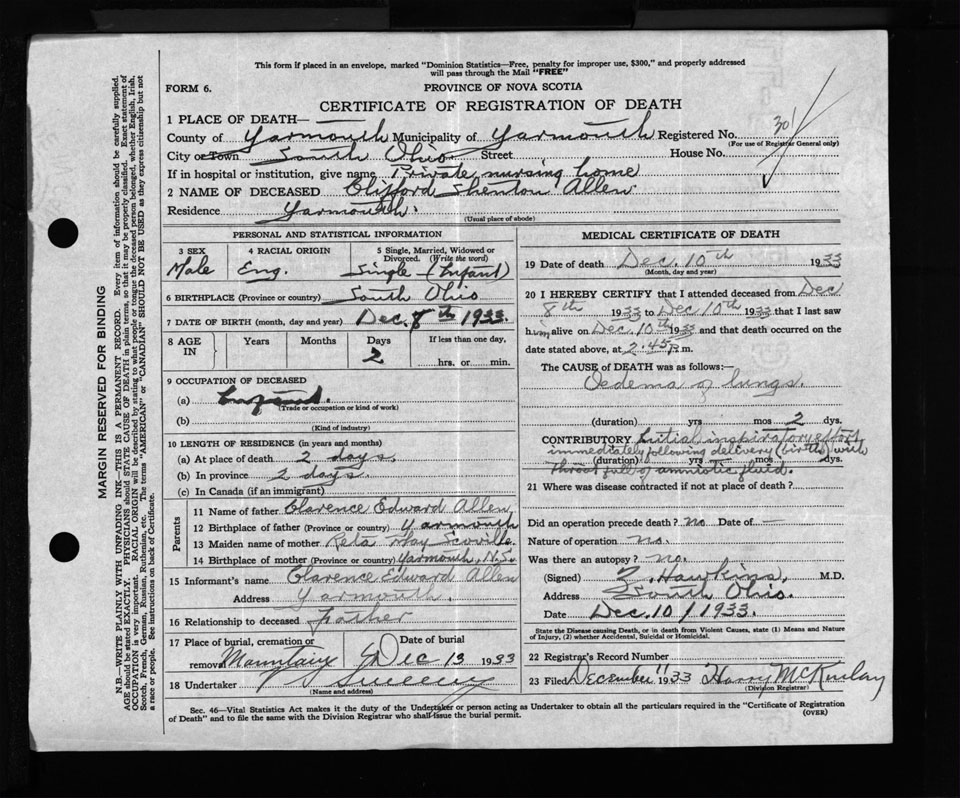 This form if placed in an envelope, marked "Dominion Statistics—Free, penalty for improper use, $300," and properly addressed
will pass through the Mail "FREE"
FORM 6.
PROVINCE OF NOVA SCOTIA
CERTIFICATE OF REGISTRATION OF DEATH
1 PLACE OF DEATH—
County of Yarmouth Municipality of Yarmouth Registered No. 301
(For use of Registrar General only)
City or Town South Ohio Street House No.
If in hospital or institution, give name Private nursing home
2 NAME OF DECEASED Clifford Shenton Allen.
Residence Yarmouth.
(Usual place of abode)
PERSONAL AND STATISTICAL INFORMATION
3 SEX
Male
4 RACIAL ORIGIN
Eng.
5 Single, Married, Widowed or
Divorced. (Write the word)
Single (Infant)
6 BIRTHPLACE (Province or country) South Ohio
7 DATE OF BIRTH (month, day and year) Dec. 8th 1933.
8 AGE
IN
Years
Months
Days
2
If less than one day,
hrs. or min.
9 OCCUPATION OF DECEASED
(a) Infant.
(Trade or occupation or kind of work)
(b)
(Kind of industry)
10 LENGTH OF RESIDENCE (in years and months)
(a) At place of death 2 days.
(b) In province 2 days.
(c) In Canada (if an immigrant)
Parents
11 Name of father Clarence Edward Allen
12 Birthplace of father (Province or country) Yarmouth
13 Maiden name of mother Reta May Scoville.
14 Birthplace of mother (Province or country) Yarmouth, N.S.
15 Informant's name Clarence Edward Allen
Address Yarmouth.
16 Relationship to deceased Father
17 Place of burial, cremation or
removal Mountain
Date of burial
Dec 13 1933
18 Undertaker Sweeny
(Name and address)
MEDICAL CERTIFICATE OF DEATH
19 Date of death Dec. 10th 1933
(Month, day and year)
20 I HEREBY CERTIFY that I attended deceased from Dec
8th 1933 to Dec 10th 1933 that I last saw
him alive on Dec. 10th 1933 and that death occurred on the
date stated above, at 2.45 P.m.
The CAUSE of DEATH was as follows:—
Oedema of lungs.
(duration) yrs mos 2 dys.
CONTRIBUTORY Initial inspiratory effort
immediately following delivery (birth) with
(duration) yrs. mos. dys.
throat full of amniotic fluid.
21 Where was disease contracted if not at place of death?
Did an operation precede death? no Date of —
Nature of operation no.
Was there an autopsy? no.
(Signed) Z. Hawkins, M.D.
Address South Ohio.
Date Dec. 10 / 1933.
State the Disease causing Death, or in death from Violent Causes, state (1) Means and Nature
of Injury, (2) whether Accidental, Suicidal or Homicidal.
22 Registrar's Record Number
23 Filed December 11 1933 Harry McKinlay
(Division Registrar)
Sec. 46—Vital Statistics Act makes it the duty of the Undertaker or person acting as Undertaker to obtain all the particulars required in the "Certificate of Registration
of Death" and to file the same with the Division Registrar who shall issue the burial permit.
(OVER)
MARGIN RESERVED FOR BINDING
N.B.—WRITE PLAINLY WITH UNFADING INK—THIS IS A PERMANENT RECORD. Every item of information should be carefully supplied.
AGE should be stated EXACTLY. PHYSICIANS should STATE CAUSE OF DEATH in plain terms, so that it may be properly classified. Exact statement of
OCCUPATION is very important. RACIAL ORIGIN will be described by stating to what people or tongue the deceased person belonged, whether English, Irish,
Scotch, French, German, Russian, Ruthenian, etc. The terms "AMERICAN" or "CANADIAN" SHOULD NOT BE USED as they express citizenship but not
a race or people. See instructions on back of Certificate.